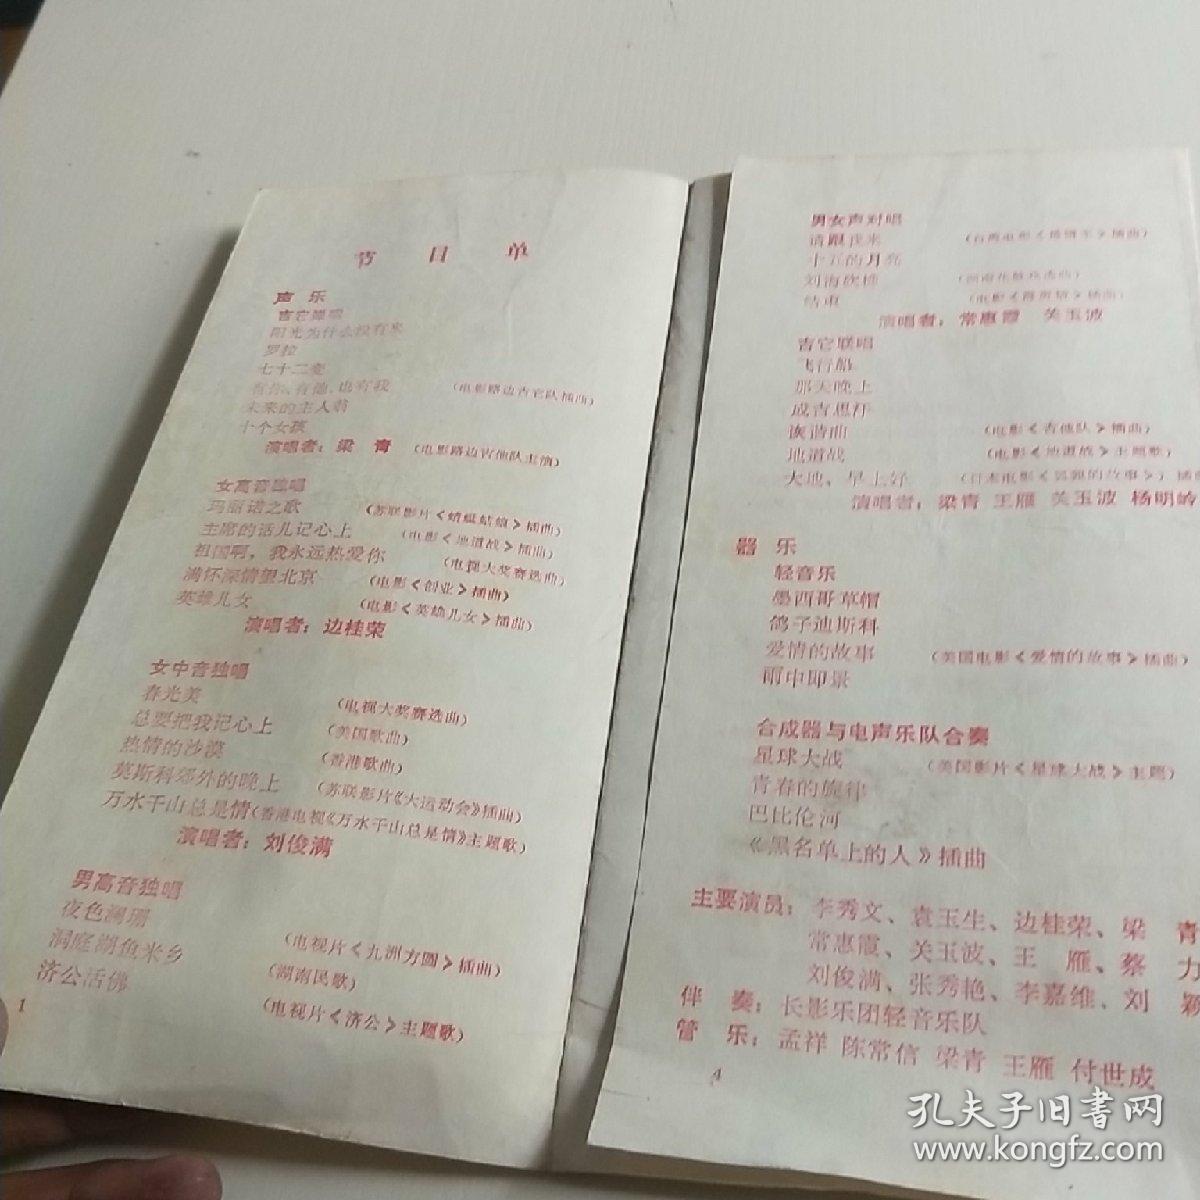 节 目 单
声 乐
吉它弹唱
阳光为什么没有来
罗拉
七十二变
有你、有他、也有我 (电影路边吉它队插曲)
未来的主人翁
十个女孩
演唱者：梁 青 (电影路边吉他队主演)
女高音独唱
玛丽诺之歌 (苏联影片《蜻蜓姑娘》插曲)
主席的话儿记心上 (电影《地道战》插曲)
祖国啊，我永远热爱你 (电视大奖赛选曲)
满怀深情望北京 (电影《创业》插曲)
英雄儿女 (电影《英雄儿女》插曲)
演唱者：边桂荣
女中音独唱
春光美 (电视大奖赛选曲)
总要把我记心上 (美国歌曲)
热情的沙漠 (香港歌曲)
莫斯科郊外的晚上 (苏联影片《大运动会》插曲)
万水千山总是情(香港电视《万水千山总是情》主题歌)
演唱者：刘俊满
男高音独唱
夜色阑珊 (电视片《九洲方圆》插曲)
洞庭湖鱼米乡 (湖南民歌)
济公活佛 (电视片《济公》主题歌)
1
男女声对唱
请跟我来 (台湾电影《搭错车》插曲)
十五的月亮
刘海砍樵 (湖南花鼓戏选曲)
结束 插曲)
演唱者：常惠霞 关玉波
吉它联唱
飞行船
那天晚上
成吉思汗
诙谐曲 (电影《吉他队》插曲)
地道战 (电影《地道战》主题歌)
大地，早上好 (日本电影 的故事》) 插曲
演唱者：梁青 王雁 关玉波 杨明岭
器 乐
轻音乐
墨西哥草帽
鸽子迪斯科
爱情的故事 (美国电影《爱情的故事》插曲)
雨中即景
合成器与电声乐队合奏
星球大战 (美国影片《星球大战》主题)
青春的旋律
巴比伦河
《黑名单上的人》插曲
主要演员：李秀文、袁玉生、边桂荣、梁 青
常惠霞、关玉波、王 雁、蔡 力
刘俊满、张秀艳、李嘉维、刘 颖
伴 奏：长影乐团轻音乐队
管 乐：孟祥 陈常信 梁青 王雁 付世成
4
孔夫子旧书网
www.kongfz.com